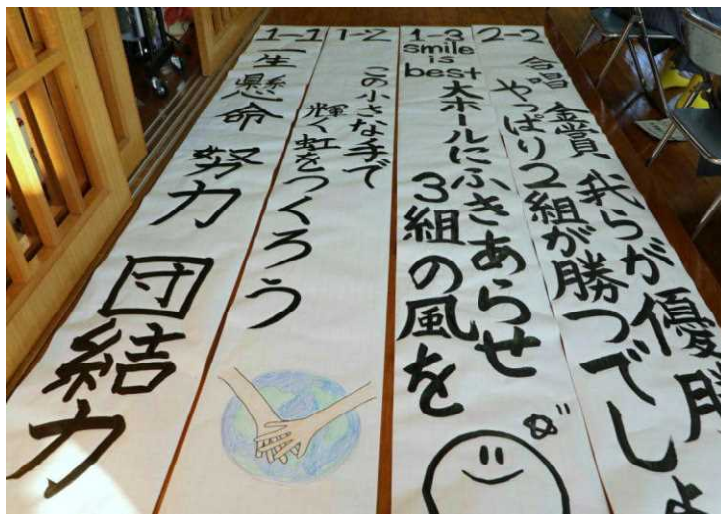 1-1
一生懸命 努力 団結力
1-2
この小さな手で
輝く虹をつくろう
1-3
smile
is
best
大ホールにふきあらせ
3組の風を
2-2
合唱 金賞 我らが優勝
やっぱり2組が勝つでしょ